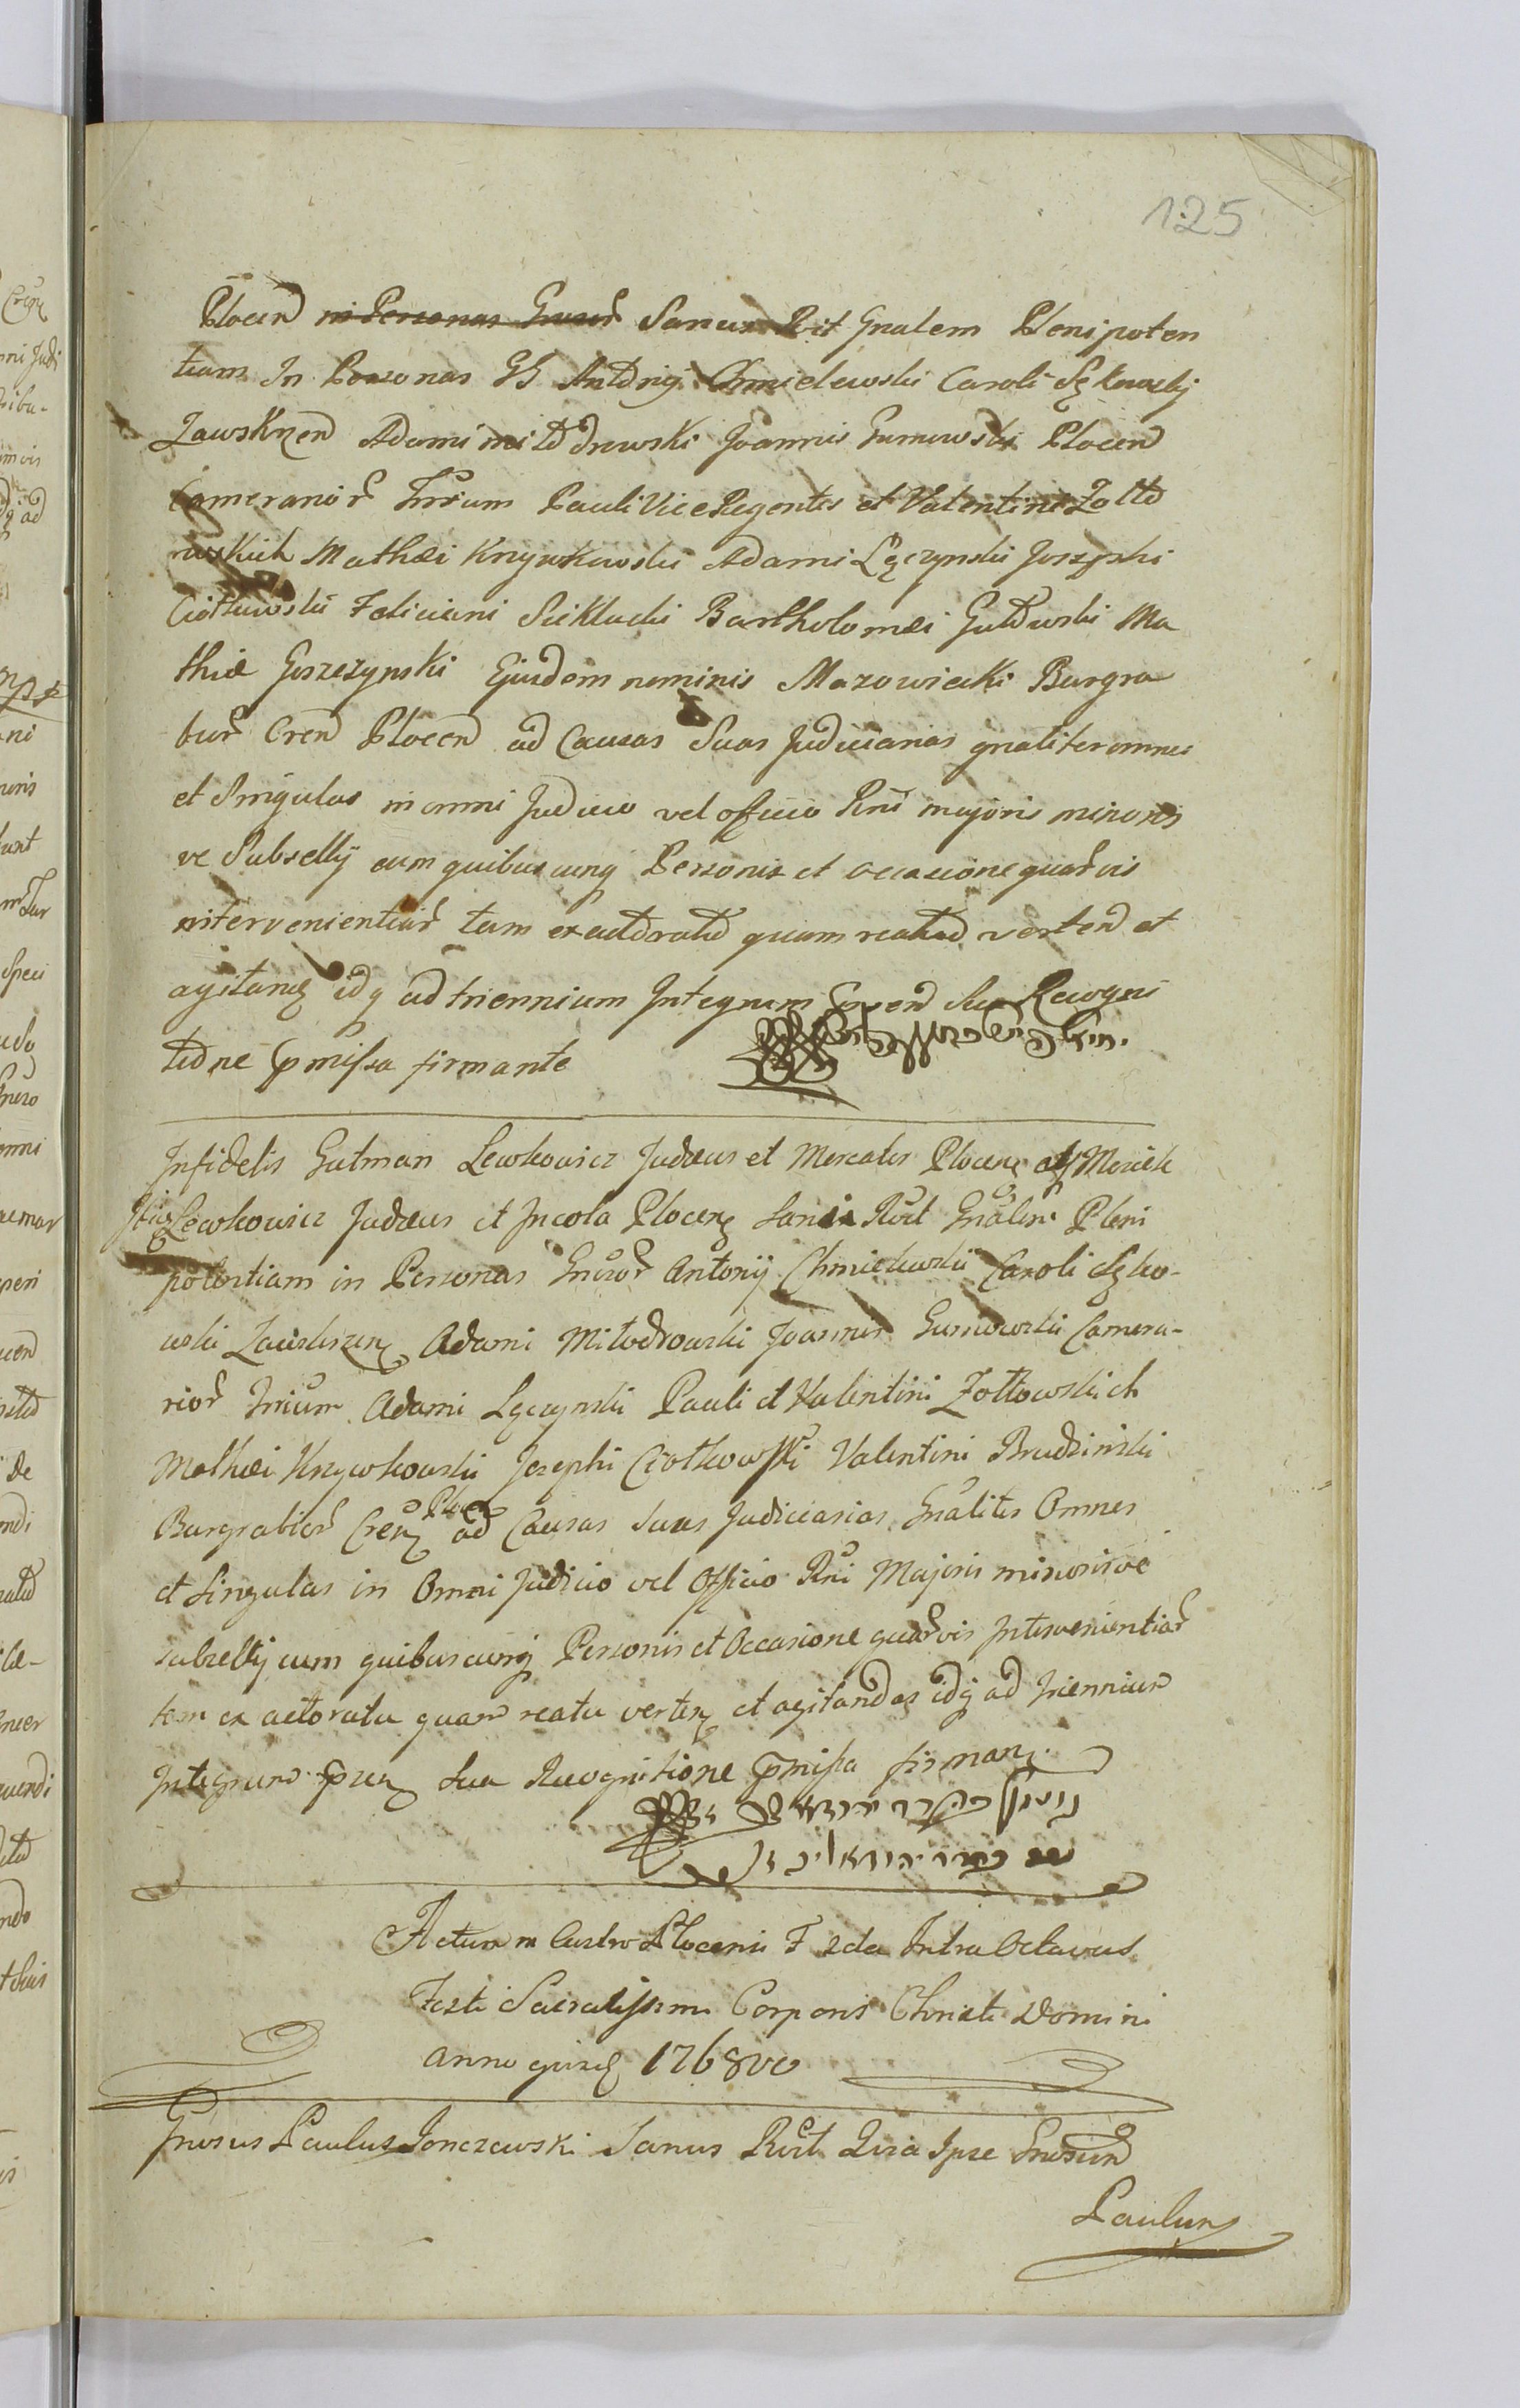 125
Plocen in Personas Gnuror Sanus Rcit Gnalem Plenipoten
tiam In Personas GG Antonij Chmielewski Caroli Sękowskj
Zawskrzen Adami Miłodrowski Joannis Gumowski Plocen
Camerarior Trrium Pauli Vice Regentis et Valentini Zołto
wskich Mathæi Krzywkowski Adami Lęczynski Josephi
Ciołkowski Feliciani Siekłucki Bartholomæi Gutowski Ma
thiæ Goszczynski Ejusdem nominis Mazowiecki Burgra
bior Cren Plocen ad Causas Suas Judiciarias gnaliter omnes
et Singulas in omni Judicio vel officio Rni majoris minoris
ve Subsellij cum quibuscunq Personis et occasione quarvis
intervenientiar tam ex actoratu quam reatu verten et
agitanq idq ad triennium Integrum Sua Recogni
tione pmissa firmante
Infidelis Gutman Lewkowicz Judæus et Mercator Plocen Mosiek
Lewkowicz Judæus et Incola Plocen Sani Rcit Gnalem Pleni
potentiam in Personas Gnuror Antonij Chmielewski Caroli Sęko-
wski Zawskrzen Adami Miłodrowski Joannis Gumowski Camera-
rior Trrium Adami Lęczynski Pauli et Valentini Zołtowskich
Mathæi Krzywkowski Josephi Ciołkowski Valentini Brudzinski
Burgrabior Cren Plocen ad Causas Suas Judiciarias Gnaliter Omnes
et Singulas in Omni Judicio vel Officio Rni Majoris minorisve
subsellij cum quibuscunq Personis et Occasione quarvis Intervenientiar
tam ex actoratu quam reatu verten et agitandas idq ad triennium
Integrum Sua Recognitione pmissa firman
Actum in Castro Plocensi F 2da Intra Octavas
Festi Sacratissimi Corporis Christi Domini
anno ejusd 1768vo
Gnrosus Paulus Jonczewski Sanus Rcit Quia Ipse Gnrosum
Paulum